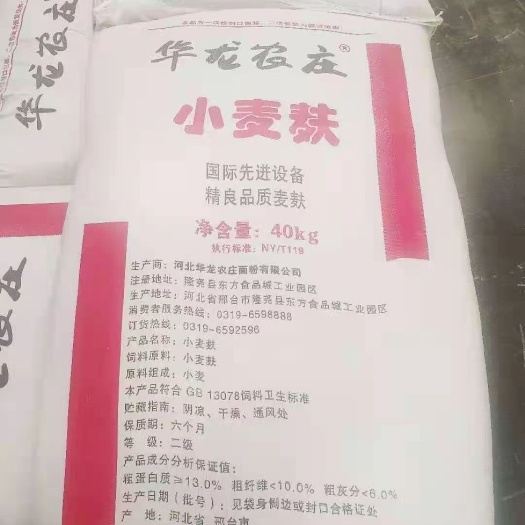 华龙农庄®
小麦麸
国际先进设备
精良品质麦麸
净含量：40kg
执行标准：NY/T119
生产商：河北华龙农庄面粉有限公司
注册地址：隆尧县东方食品城工业园区
生产地址：河北省邢台市隆尧县东方食品城工业园区
消费者服务热线：0319-6598888
订货热线：0319-6592596
产品名称：小麦麸
饲料原料：小麦麸
原料组成：小麦
本产品符合 GB 13078饲料卫生标准
贮藏指南：阴凉、干燥、通风处
保质期：六个月
等　级：二级
产品成分分析保证值：
粗蛋白质≥13.0% 粗纤维<10.0% 粗灰分<6.0%
生产日期（批号）：见袋身侧边或封口合格证处
产　地：河北省 邢台市
华龙农庄